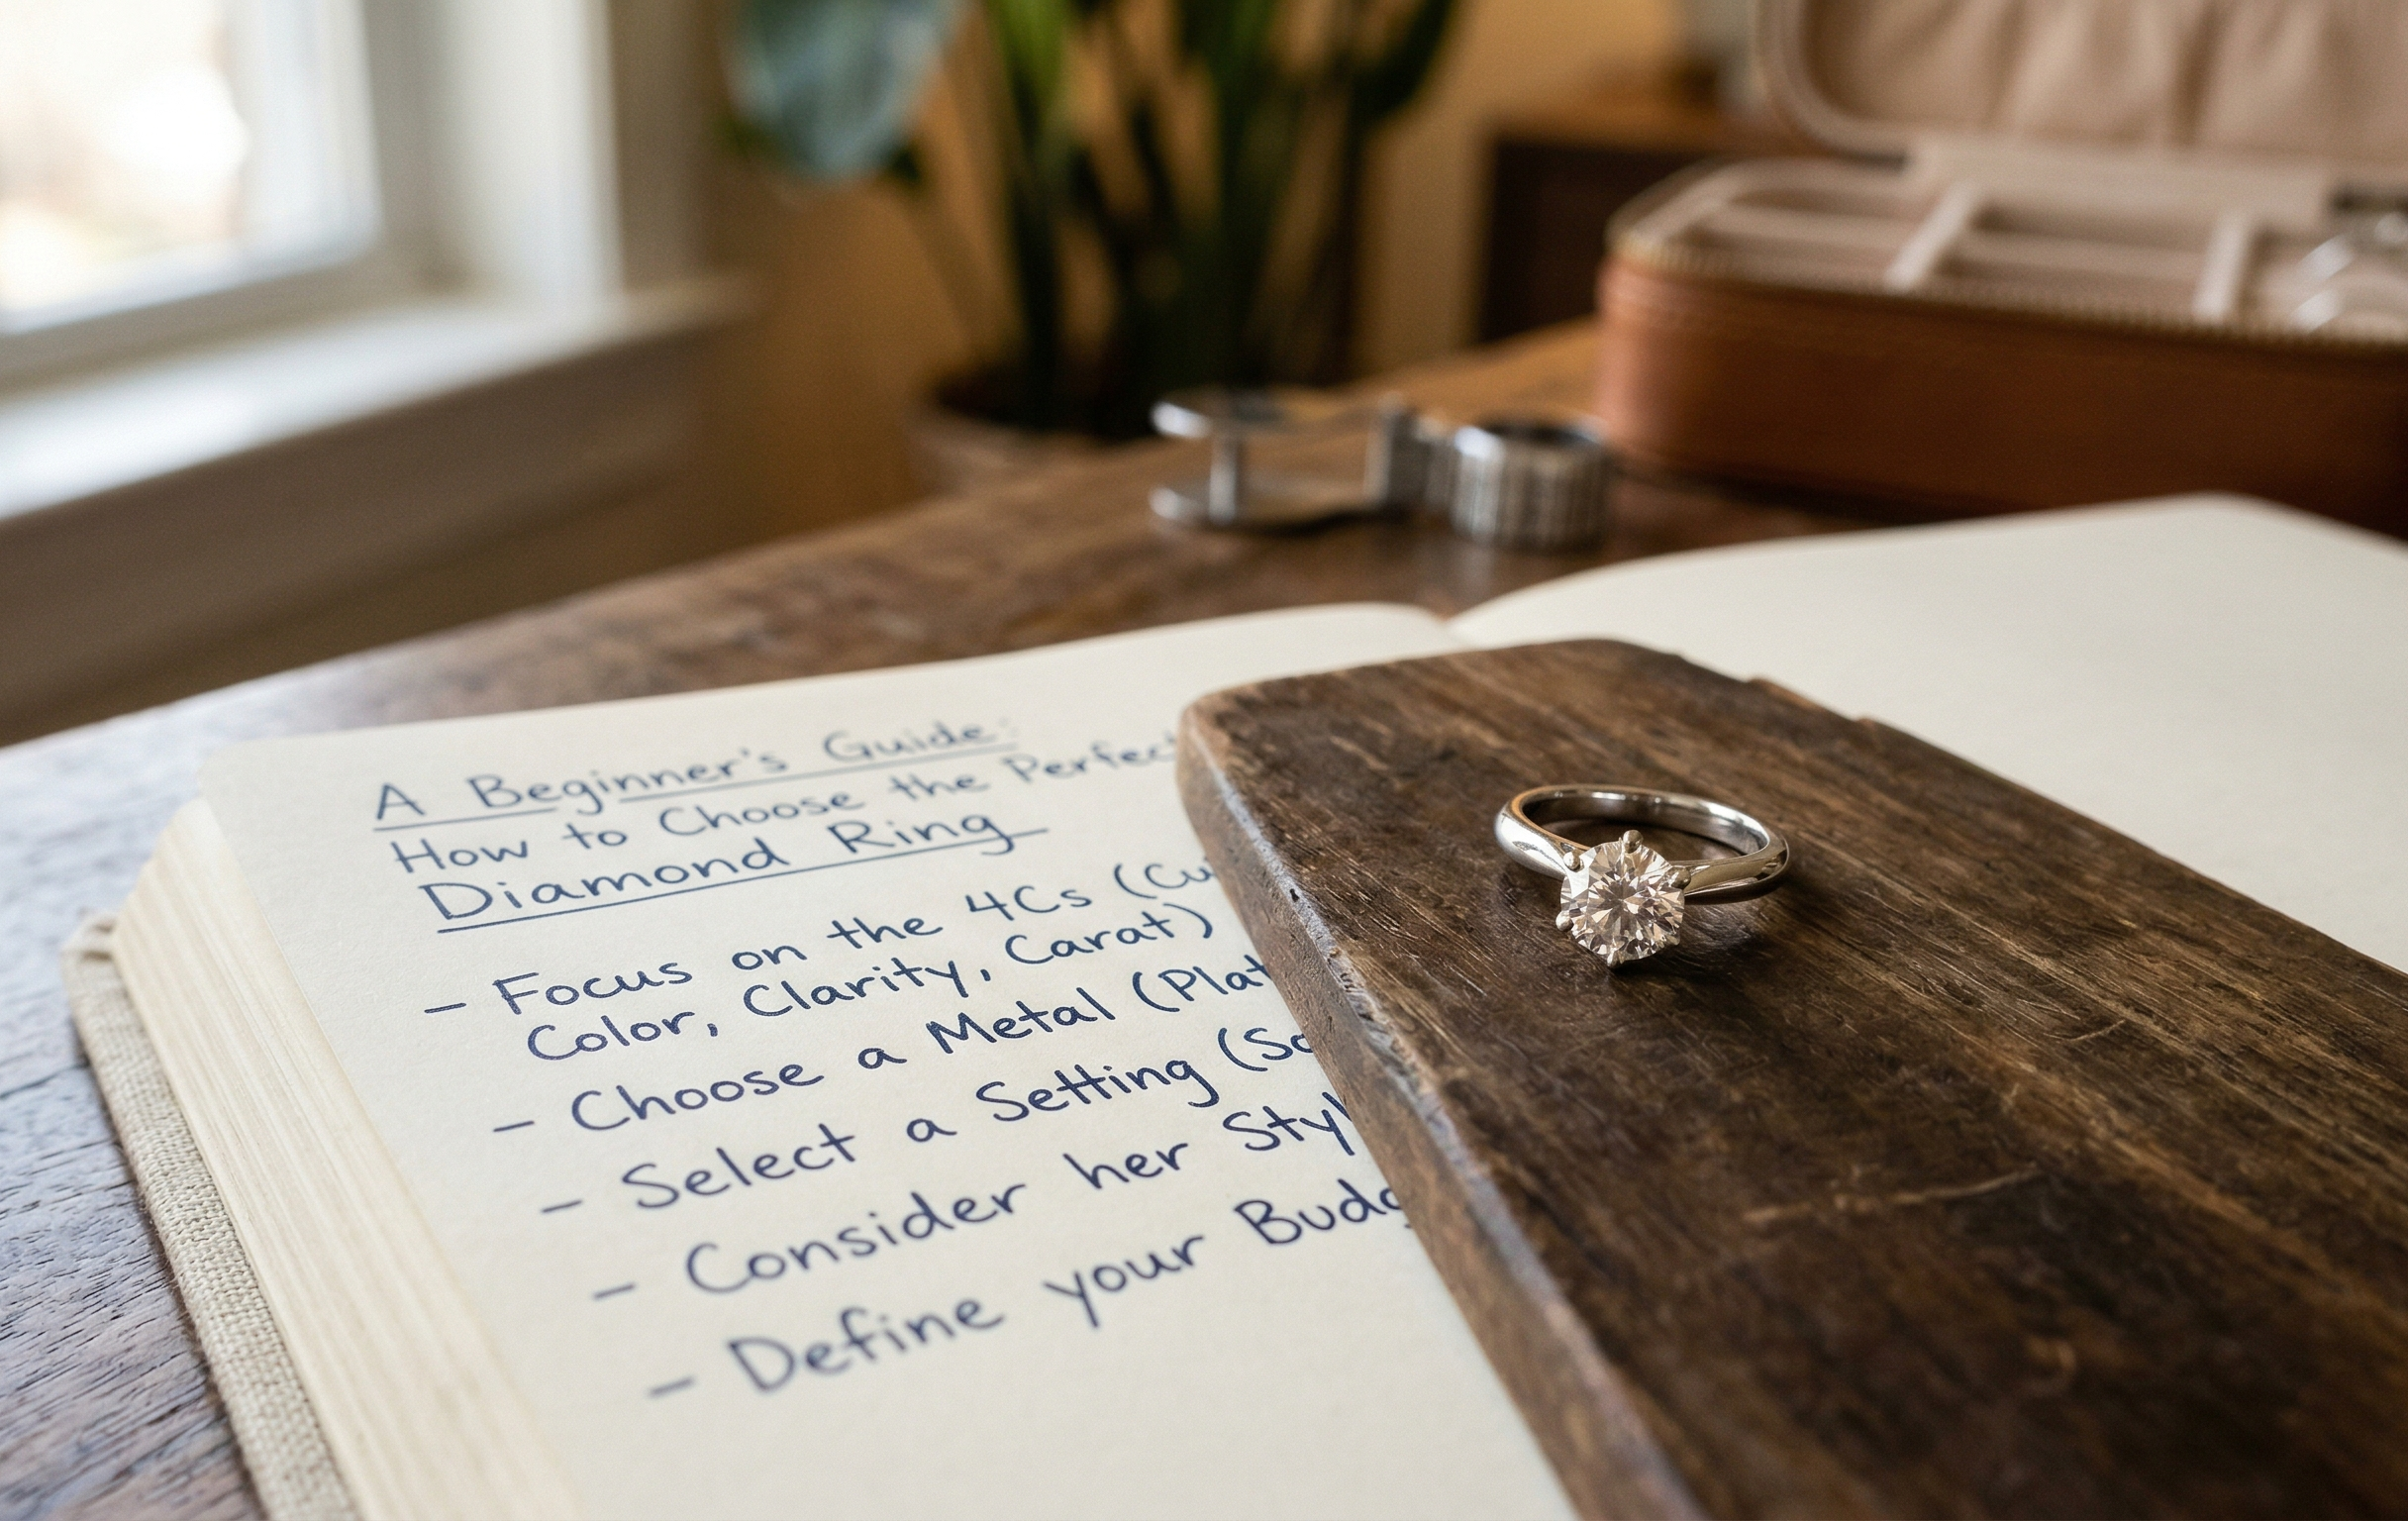 A Beginner's Guide:
How to Choose the Perfect
Diamond Ring
- Focus on the 4Cs (Cu
Color, Clarity, Carat)
- Choose a Metal (Plat
- Select a Setting (So
- Consider her Styl
- Define your Budg